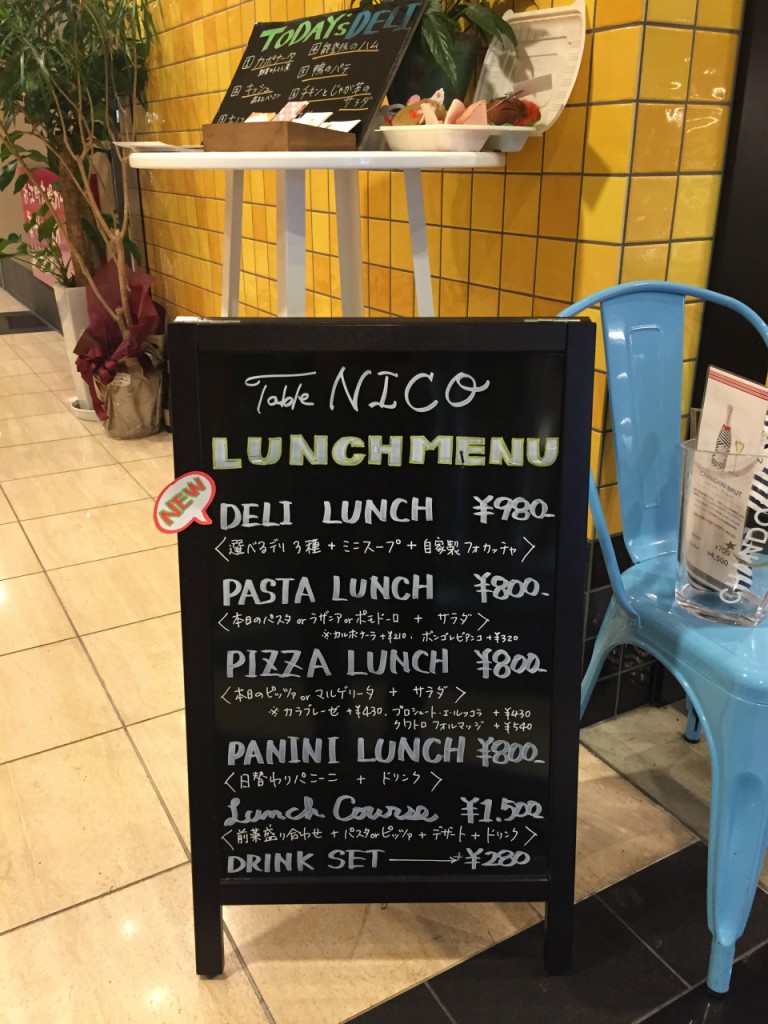 TODAY'S DELI
① カポナータ
④ 能登豚のハム
⑤ 鴨のパテ
② キッシュ
⑥ チキンとじゃが芋の
サラダ
Table NICO
LUNCH MENU
NEW
DELI LUNCH ¥980-
〈選べるデリ3種 + ミニスープ + 自家製フォカッチャ〉
PASTA LUNCH ¥800-
〈本日のパスタ or ラザニア or ポモドーロ + サラダ〉
※カルボナーラ +¥210. ボンゴレビアンコ +¥320
PIZZA LUNCH ¥800-
〈本日のピッツァ or マルゲリータ + サラダ〉
※カラブレーゼ +¥430. プロシュート・エ・ルッコラ +¥430
クワトロ フォルマッジ +¥540
PANINI LUNCH ¥800-
〈日替わりパニーニ + ドリンク〉
Lunch Course ¥1.500
〈前菜盛り合わせ + パスタ or ピッツァ + デザート + ドリンク〉
DRINK SET → ¥280
CHANDON BRUT
¥700
¥4,500
CHANDO